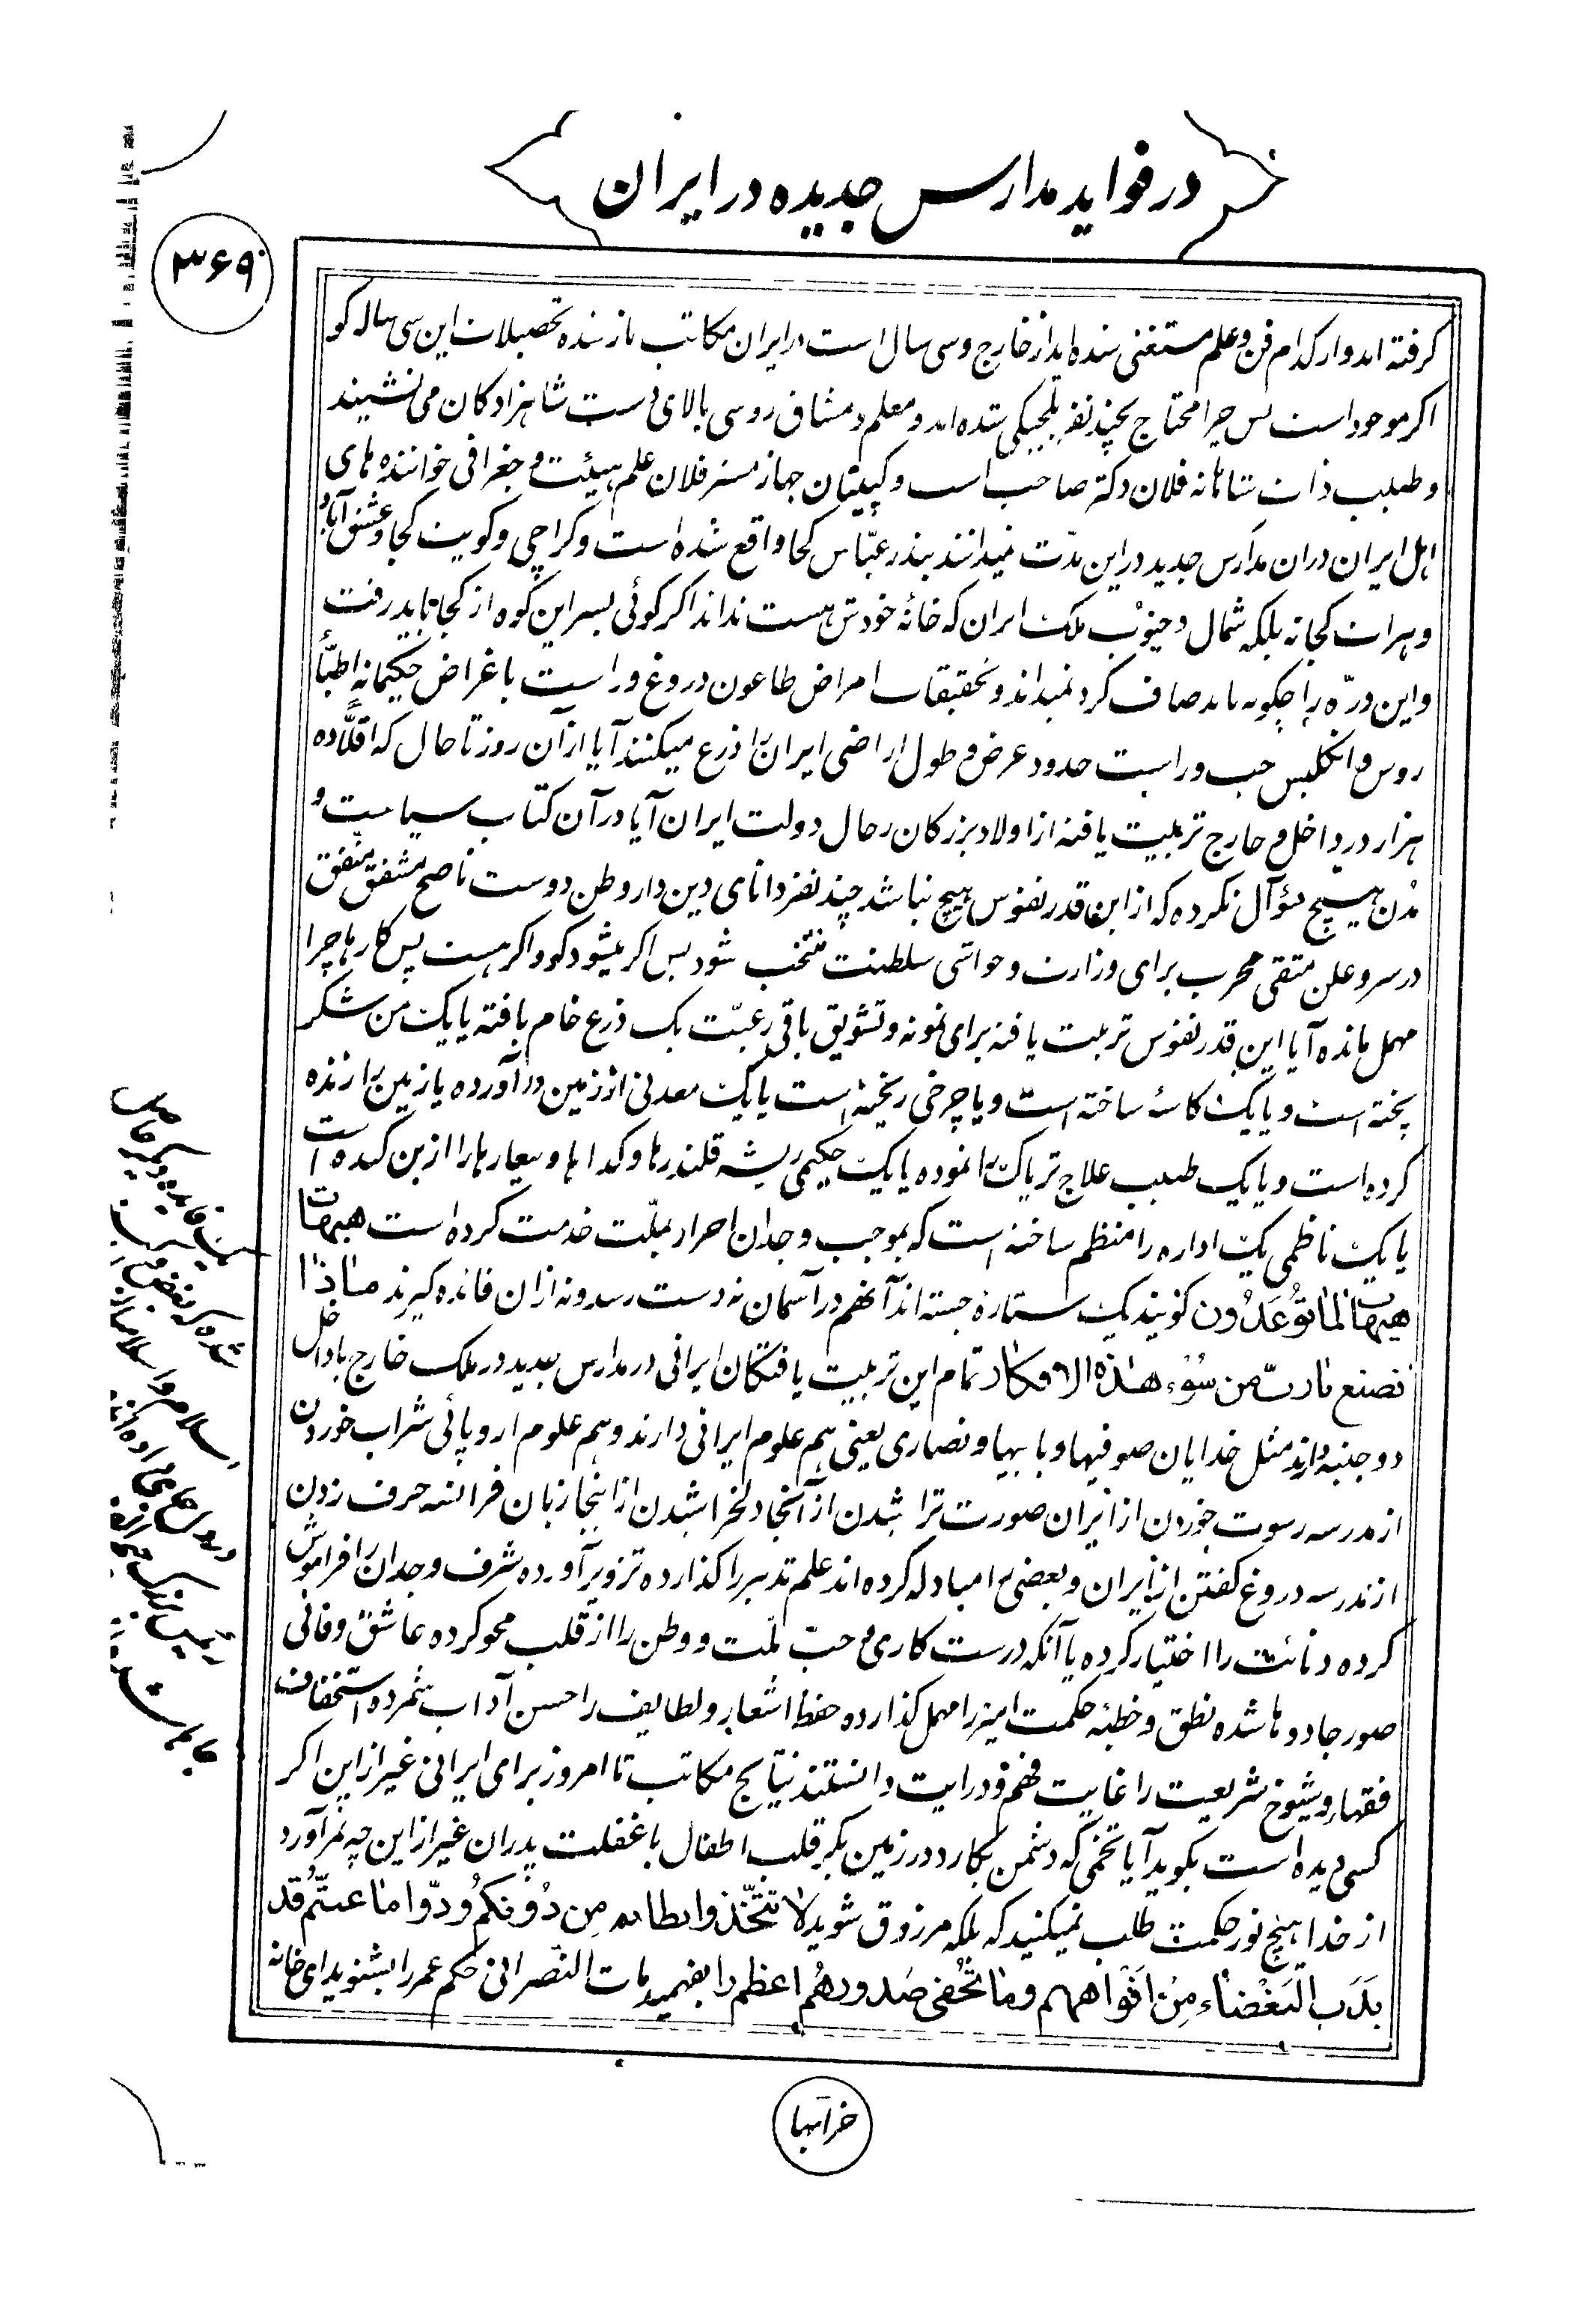 در فواید مدارس جدیده در ایران
۳۶۹
کرفته اند و از کدام فن و علم مستغنی شده اید از خارج و سی سال است در ایران مکاتب باز شده تحصیلات این سی ساله کو
اکر موجود است پس چرا محتاج بچند نفر بلجیکی شده اند و معلم و مشاق روسی بالای دست شاهزادکان می نشیند
و طبیب ذات شاهانه فلان دکتر صاحب است و کپیتان جهاز مستر فلان علم هیئت و جغرافی خواننده های
اهل ایران در ان مدارس جدید در این مدّت نمیدانند بندر عبّاس کجا واقع شده است و کراچی و کویت کجا و عشق آباد
و هرات کجا نه بلکه شمال و جنوب ملک ایران که خانهٔ خودش هست نداند اکر کوئی بسر این کوه از کجا باید رفت
و این درّه را چکونه باید صاف کرد نمیداند و تحقیقات امراض طاعون دروغ و راست با غراض حکیمانه اطبّأ
روس و انکلیس چپ و راست حدود عرض و طول اراضی ایران را ذرع میکنند آیا از آن روز تا حال که اقلًّا ده
هزار در داخل و خارج تربیت یافته از اولاد بزرکان رجال دولت ایران آیا در آن کتاب سیاست و
مُدن هیچ سؤآل نکرده که از این قدر نفوس هیچ نباشد چند نفر دانای دین دار وطن دوست ناصح مشفق متفق
در سر و علن متقی مجرب برای وزارت و حواشی سلطنت منتخب شود پس اکر میشود کو و اکر هست پس کارها چرا
مهمل مانده آیا این قدر نفوس تربیت یافته برای نمونه و تشویق باقی رعیّت یک ذرع خام بافته یا یک من شکر
پخته است و یا یک کاسهٔ ساخته است و یا چرخی ریخته است یا یک معدنی از زمین در آورده یا زمین را زنده
کرده است و یا یک طبیب علاج تریاک را نموده یا یک حکیمی ریشه قلندرها و کداها و بیعارها را از بن کنده است
یا یک ناظمی یک اداره را منظم ساخته است که بموجب وجدان احرار بملّت خدمت کرده است هیهات
هیهات لما توُعَدُون کویند یک ستاره جسته اند آنهم در آسمان نه دست رسد و نه از ان فائده کیرند ماذا
نصنع یا ربّ من سُوْء هذه الافکار تمام این تربیت یافتکان ایرانی در مدارس جدید در ملک خارج یا داخل
دو جنبه دارند مثل خدایان صوفیها و بابیها و نصاری یعنی هم علوم ایرانی دارند و هم علوم اروپائی شراب خوردن
از مدرسه رسوت خوردن از ایران صورت تراشیدن از آنجا دلخراشیدن از اینجا زبان فرانسه حرف زدن
از مدرسه دروغ کفتن از ایران و بعضی را مبادله کرده اند علم تدبیر را کذارده تزویر آورده شرف وجدان را فراموش
کرده دنائت را اختیار کرده یا آنکه درست کاری و حب ملّت و وطن را از قلب محو کرده عاشق و فانی
صور جادوها شده نطق و خطبه حکمت امیز را مهمل کذارده حفظ اشعار و لطایف را حسن آداب شمرده استخفاف
فقهاء و شیوخ شریعت را غایت فهم و درایت دانستند نتایج مکاتب تا امروز برای ایرانی غیر از این اکر
کسی دیده است بکوید آیا تخمی که دشمن بکارد در زمین بکر قلب اطفال با غفلت پدران غیر از این چه ثمر آورد
از خدا هیچ نور حکمت طلب نمیکنید که بلکه مرزوق شوید لا تتّخذوا بطانه مِن دُوْنِکُم ودّوا ما عنتّم قد
بَدَتِ الْبَغْضٰاء مِنْ اَفْواههم وما تُخْفی صُدورهُم اعظم را بفهمید مات النّصرانی حکم عمر را بشنوید ای خانه
خرابها